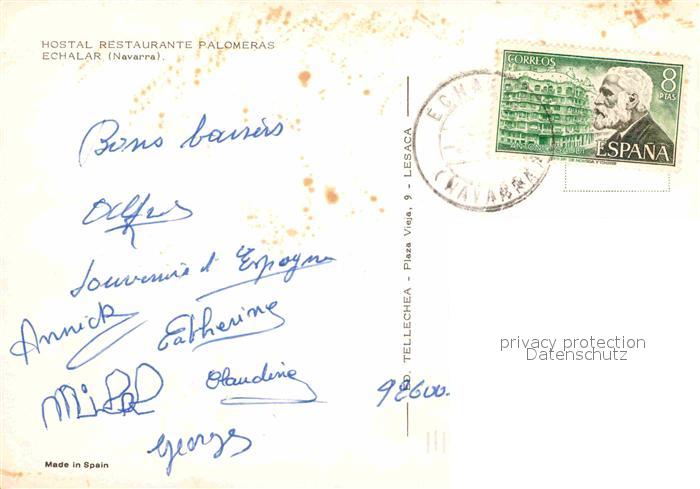 HOSTAL RESTAURANTE PALOMERAS
ECHALAR (Navarra).
Bons baisers
Alfred
Souvenir d'Espagne
Annick
Catherine
Michel
Claudine
Georges
Made in Spain
ED. TELLECHEA - Plaza Vieja, 9 - LESACA
CORREOS
8
PTAS
ESPAÑA
ECHA
(NAVARRA)
privacy protection
Datenschutz
92600